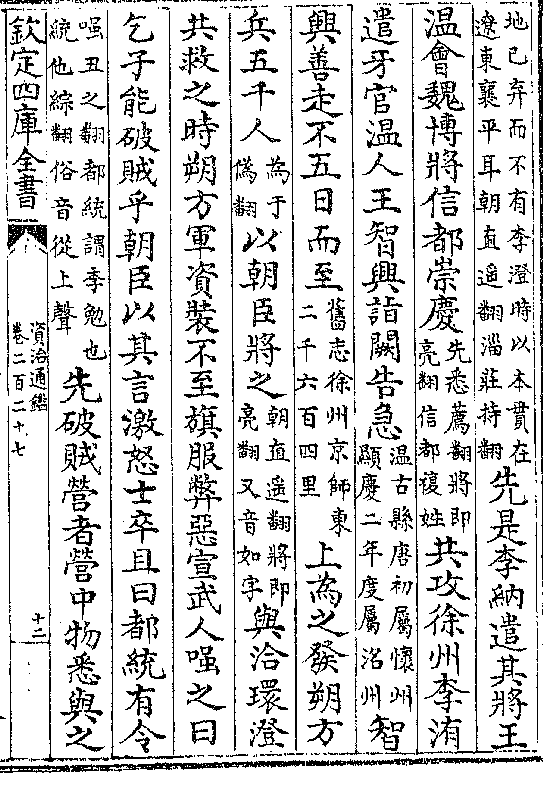 地已弃而不有李澄時以本貫在遼東襄平耳朝直遥翻淄莊持翻先是李納遣其將王
溫會魏博將信都崇慶先悉薦翻將即亮翻信都複姓共攻徐州李洧
遣牙官溫人王智興詣闕告急温古縣唐初屬懷州顯慶二年度屬洺州智
興善走不五日而至舊志徐州京師東二千六百四里上為之發朔方
兵五千人為于偽翻以朝臣將之朝直遥翻將即亮翻又音如字與洽環澄
共救之時朔方軍資裝不至旗服弊惡宣武人嗤之曰
乞子能破賊乎朝臣以其言激怒士卒且曰都統有令
嗤丑之翻都統謂李勉也統他綜翻俗音從上聲先破賊營者營中物悉與之
欽定四庫全書
資治通鑑
卷二百二十七
十二